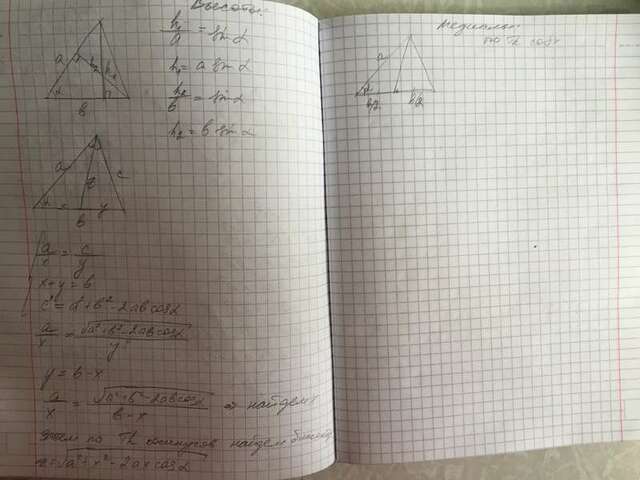 Высоты:
h₁/a = sin α
h₁ = a sin α
h₂/b = sin α
h₂ = b sin α
a
h₂
h₁
α
b
a
c
α
b
y
a/x = c/y
x+y = b
c² = a² + b² - 2ab cos α
a/x = √(a² + b² - 2ab cos α)/y
y = b - x
a/x = √(a² + b² - 2ab cos α)/(b - x) ⇒ найдем x
Затем по Th косинусов найдем
= √(a² + x² - 2ax cos α)
Медианы:
по Th cos
a
α
b/2
b/2